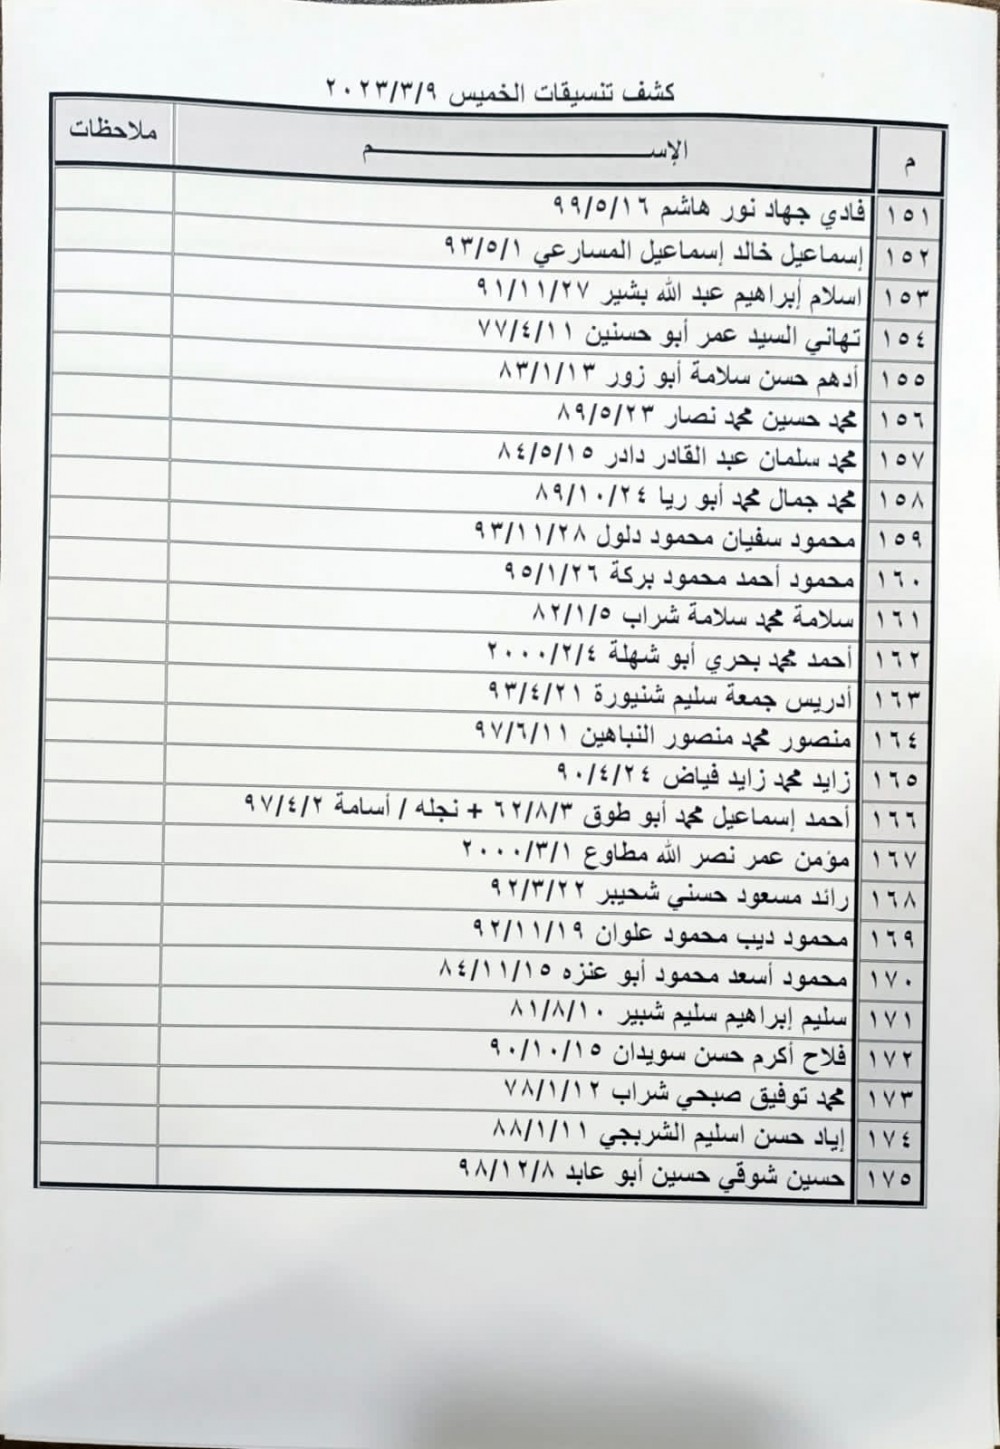 كشف تنسيقات الخميس ٢٠٢٣/٣/٩
م الإســـــــم ملاحظات
١٥١ فادي جهاد نور هاشم ٩٩/٥/١٦
١٥٢ إسماعيل خالد إسماعيل المسارعي ٩٣/٥/١
١٥٣ اسلام إبراهيم عبد الله بشير ٩١/١١/٢٧
١٥٤ تهاني السيد عمر أبو حسنين ٧٧/٤/١١
١٥٥ أدهم حسن سلامة أبو زور ٨٣/١/١٣
١٥٦ محمد حسين محمد نصار ٨٩/٥/٢٣
١٥٧ محمد سلمان عبد القادر دادر ٨٤/٥/١٥
١٥٨ محمد جمال محمد أبو ريا ٨٩/١٠/٢٤
١٥٩ محمود سفيان محمود دلول ٩٣/١١/٢٨
١٦٠ محمود أحمد محمود بركة ٩٥/١/٢٦
١٦١ سلامة محمد سلامة شراب ٨٢/١/٥
١٦٢ أحمد محمد بحري أبو شهلة ٢٠٠٠/٢/٤
١٦٣ أدريس جمعة سليم شنيورة ٩٣/٤/٢١
١٦٤ منصور محمد منصور النباهين ٩٧/٦/١١
١٦٥ زايد محمد زايد فياض ٩٠/٤/٢٤
١٦٦ أحمد إسماعيل محمد أبو طوق ٦٢/٨/٣ + نجله / أسامة ٩٧/٤/٢
١٦٧ مؤمن عمر نصر الله مطاوع ٢٠٠٠/٣/١
١٦٨ رائد مسعود حسني شحيبر ٩٢/٣/٢٢
١٦٩ محمود ديب محمود علوان ٩٢/١١/١٩
١٧٠ محمود أسعد محمود أبو عنزه ٨٤/١١/١٥
١٧١ سليم إبراهيم سليم شبير ٨١/٨/١٠
١٧٢ فلاح أكرم حسن سويدان ٩٠/١٠/١٥
١٧٣ محمد توفيق صبحي شراب ٧٨/١/١٢
١٧٤ إياد حسن اسليم الشربجي ٨٨/١/١١
١٧٥ حسين شوقي حسين أبو عابد ٩٨/١٢/٨